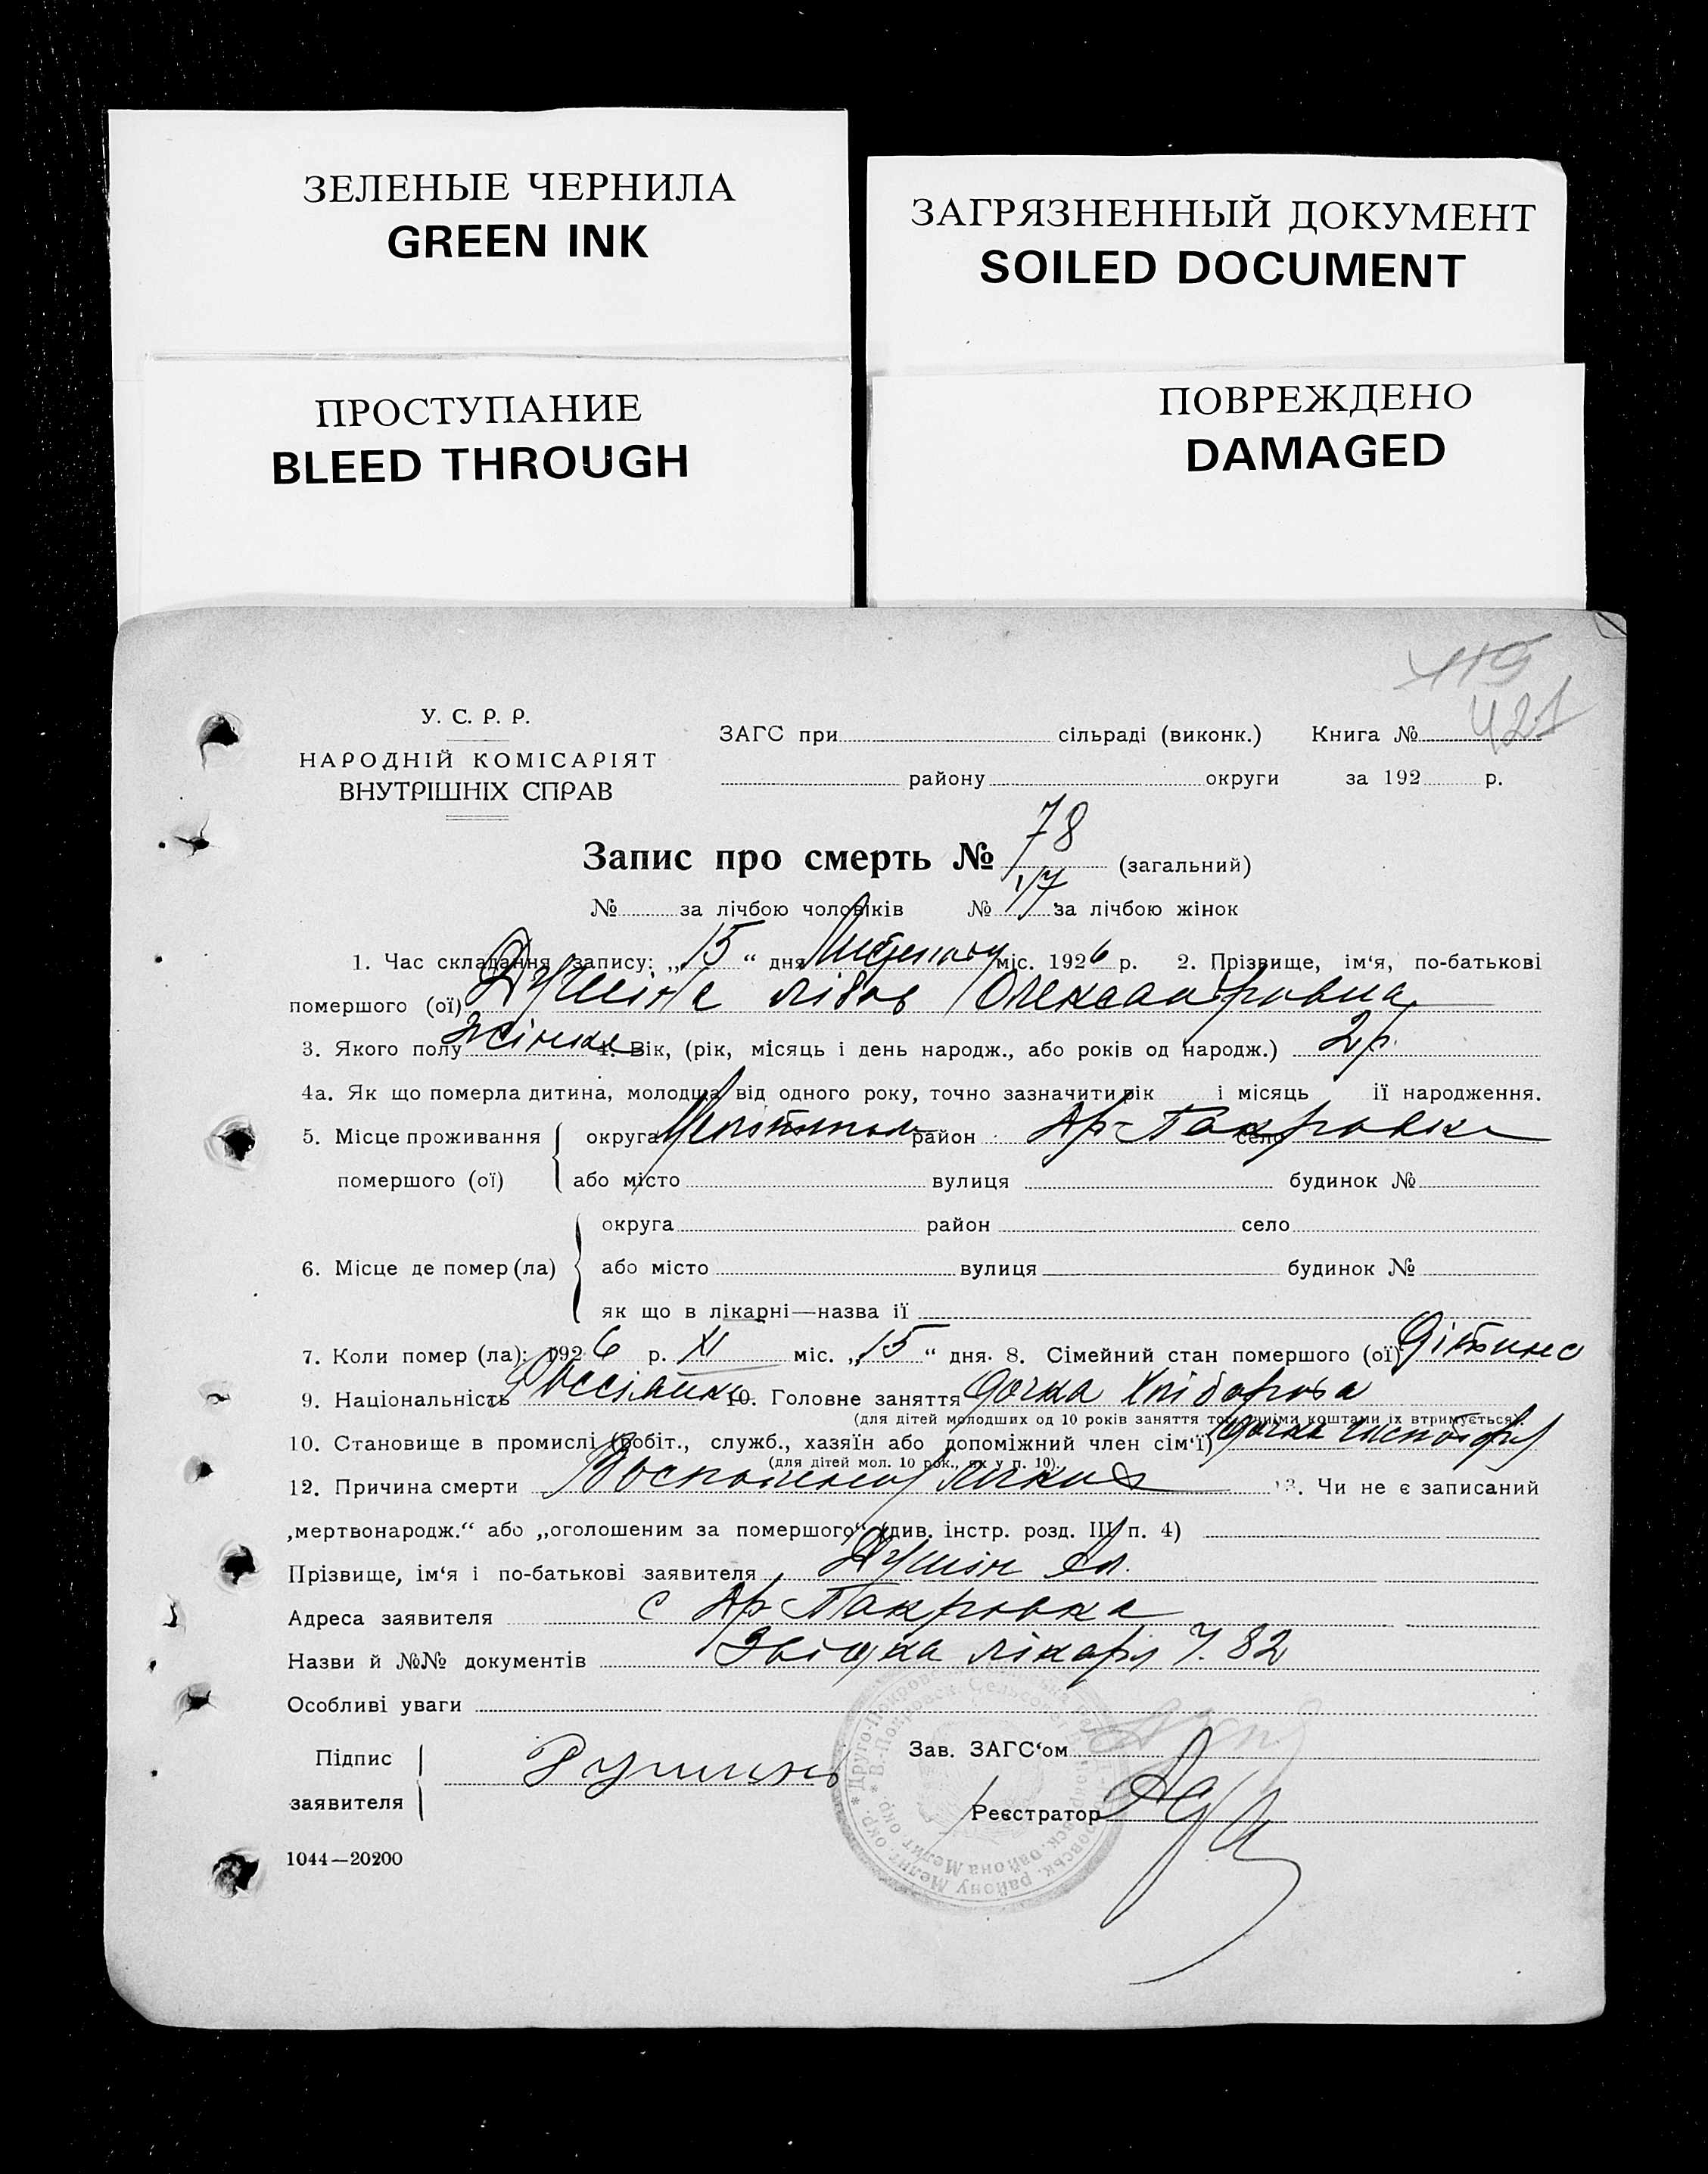 ЗЕЛЕНЫЕ ЧЕРНИЛА
GREEN INK
ЗАГРЯЗНЕННЫЙ ДОКУМЕНТ
SOILED DOCUMENT
ПРОСТУПАНИЕ
BLEED THROUGH
ПОВРЕЖДЕНО
DAMAGED
119
421
У. С. Р. Р.
НАРОДНІЙ КОМІСАРІЯТ
ВНУТРІШНІХ СПРАВ
ЗАГС при сільраді (виконк.) Книга №
району округи за 192 р.
Запис про смерть № 78 (загальний)
№ за лічбою чоловіків № 17 за лічбою жінок
1. Час складання запису: „15“ дня міс. 1926 р. 2. Прізвище, ім‘я, по-батькові
помершого (ої) Душіна Любов Олександровна
3. Якого полу жіноча 4. Вік, (рік, місяць і день народж., або років од народж.) 2 р.
4а. Як що померла дитина, молодша від одного року, точно зазначити рік і місяць її народження.
5. Місце проживання помершого (ої) округа Мелітополь район село Др-Покровка
або місто вулиця будинок №
6. Місце де помер (ла) округа район село
або місто вулиця будинок №
як що в лікарні—назва її
7. Коли помер (ла): 1926 р. XI міс. „15“ дня. 8. Сімейний стан помершого (ої) Дітина
9. Національність Россіянка 10. Головне заняття Дочка Хлібороба
(для дітей молодших од 10 років заняття того, чиїми коштами їх втримується).
10. Становище в промислі (робіт., служб., хазяїн або допоміжний член сім‘ї) дочка
(для дітей мол. 10 рок., як у п. 10).
12. Причина смерти 13. Чи не є записаний
„мертвонародж.“ або „оголошеним за помершого“ (див. інстр. розд. III п. 4)
Прізвище, ім‘я і по-батькові заявителя Душін Ол.
Адреса заявителя с Др-Покровка
Назви й №№ документів Звістка лікаря № 82
Особливі уваги
Підпис заявителя
Зав. ЗАГС‘ом
Реєстратор
1044—20200